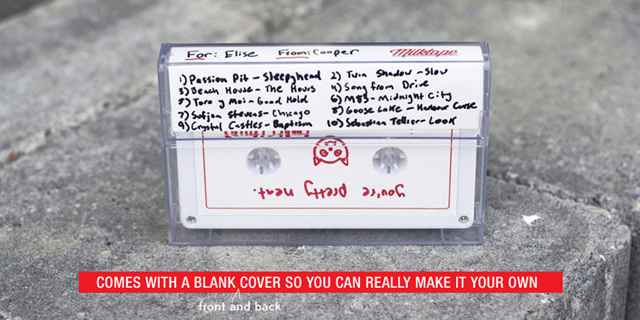 For: Elise From: Cooper Milktape
1) Passion Pit - Sleepyhead 2) Twin Shadow - Slow
3) Beach House - The Hours 4) Song from Drive
5) Toro y Moi - Good Hold 6) M83 - Midnight City
7) Sufjan Stevens - Chicago 8) Goose Lake - Harbour Curse
9) Crystal Castles - Baptism 10) Sebastian Tellier - Look
you're pretty neat.
COMES WITH A BLANK COVER SO YOU CAN REALLY MAKE IT YOUR OWN
front and back